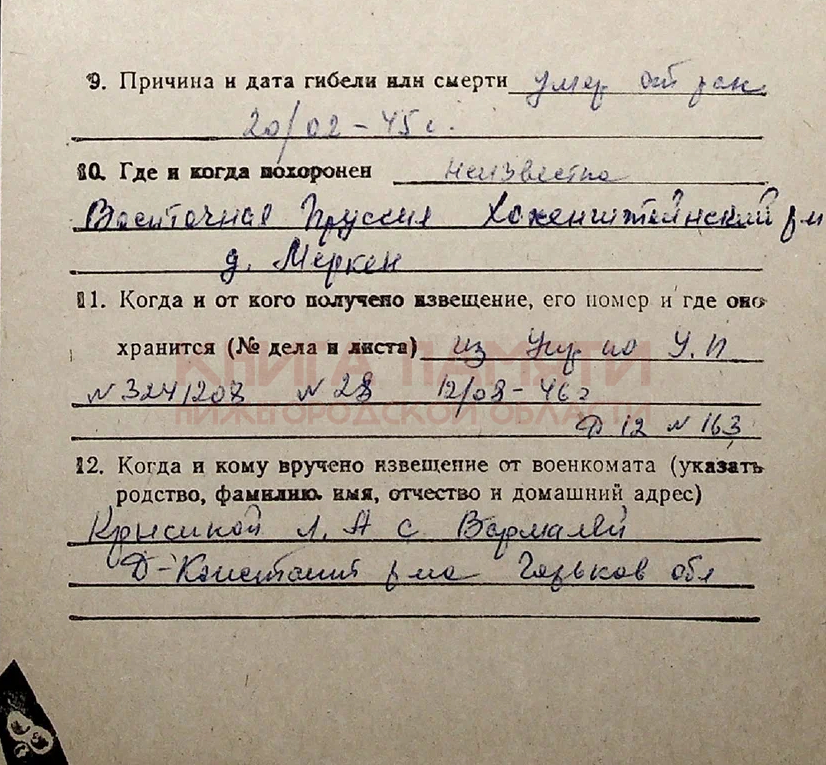 9. Причина и дата гибели или смерти умер от ран
20/02-45 г.
10. Где и когда похоронен неизвестно
Восточная Пруссия Хохенштейнский р-н
д. Меркен
11. Когда и от кого получено извещение, его номер и где оно
хранится (№ дела и листа) из Упр по У.П
КНИГА ПАМЯТИ
N 324/208 N 28 12/08-46 г
НИЖЕГОРОДСКОЙ ОБЛАСТИ
Д 12 N 163
12. Когда и кому вручено извещение от военкомата (указать
родство, фамилию, имя, отчество и домашний адрес)
Л. А с. Вармалей
Д-Констант р-на Горьков обл